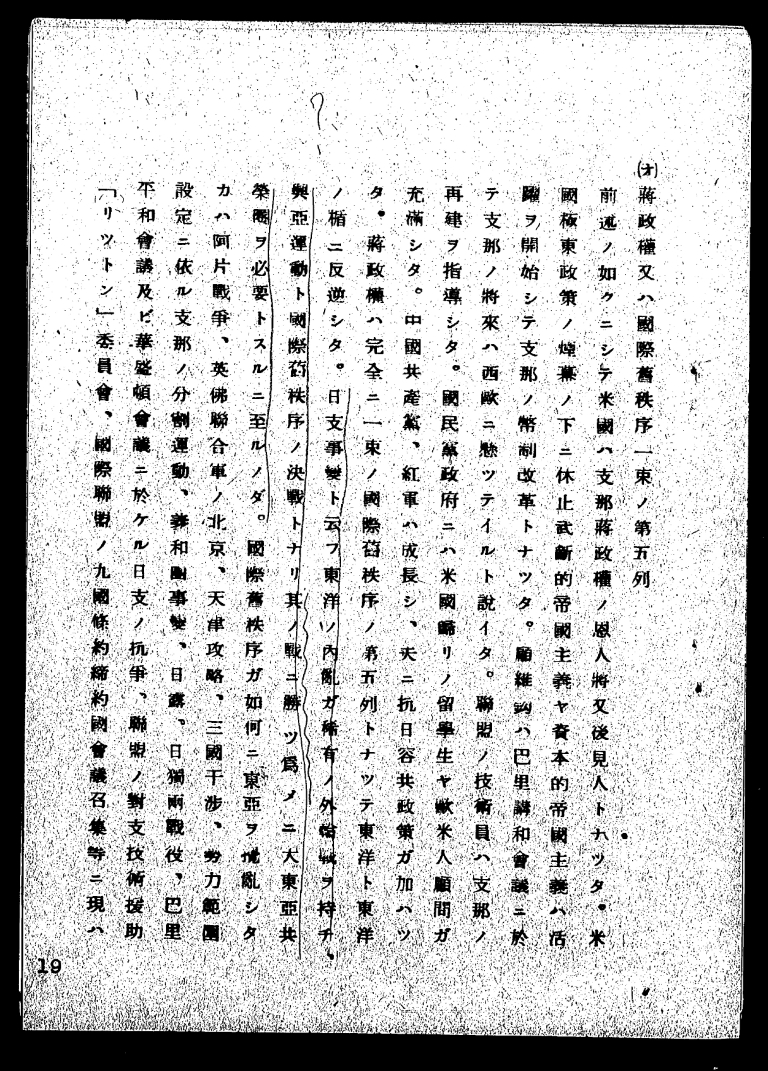 (オ)蔣政權又ハ國際舊秩序一束ノ第五列
前述ノ如クニシテ米國ハ支那蔣政權ノ恩人將又後見人トナツタ。米
國極東政策ノ煙幕ノ下ニ休止武斷的帝國主義ヤ資本的帝國主義ハ活
躍ヲ開始シテ支那ノ幣制改革トナツタ。顧維鈞ハ巴里講和會議ニ於
テ支那ノ將來ハ西歐ニ懸ツテイルト說イタ。聯盟ノ技術員ハ支那ノ
再建ヲ指導シタ。國民黨政府ニハ米國歸リノ留學生ヤ歐米人顧問ガ
充滿シタ。中國共產黨、紅軍ハ成長シ、夫ニ抗日容共政策ガ加ハツ
タ。蔣政權ハ完全ニ一束ノ國際舊秩序ノ第五列トナツテ東洋ト東洋
ノ楯ニ反逆シタ。日支事變ト云フ東洋ノ內亂ガ稀有ノ外皰戰ヲ持チ、
興亞運動ト國際舊秩序ノ決戰トナリ其ノ戰ニ勝ツ爲メニ大東亞共
榮圈ヲ必要トスルニ至ルノダ。國際舊秩序ガ如何ニ東亞ヲ攪亂シタ
カハ阿片戰爭、英佛聯合軍ノ北京、天津攻略、三國干涉、勢力範圍
設定ニ依ル支那ノ分割運動、義和團事變、日露。日獨兩戰役、巴里
平和會議及ビ華盛頓會議ニ於ケル日支ノ抗爭、聯盟ノ對支技術援助
「リツトン」委員會、國際聯盟ノ九國條約締約國會議召集等ニ現ハ
19